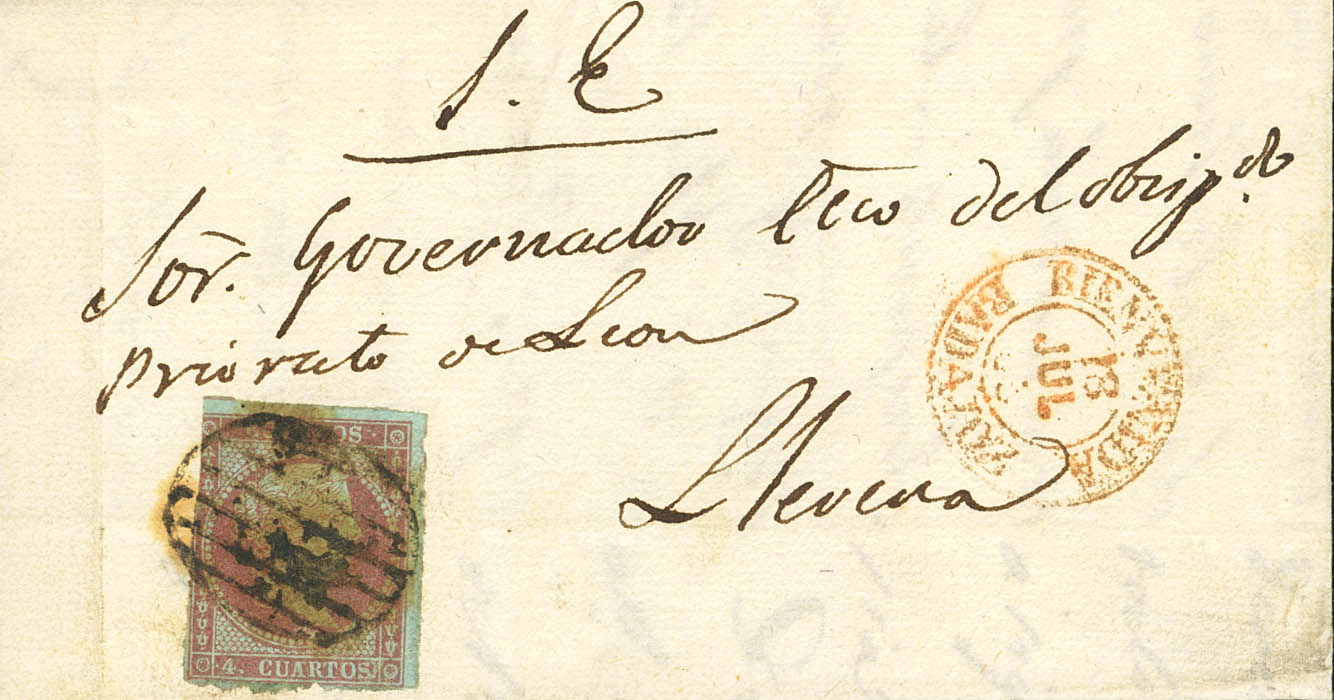 S. E
Sor. Governador Ecco del obisp.do
Priorato de Leon
Llerena
BIENVENIDA
BADAJOZ
18
JUL
CORREOS
4. CUARTOS